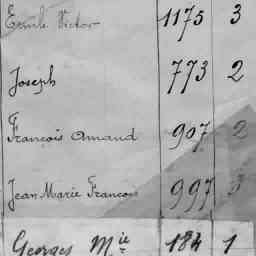 Emile Victor 1175 3
Joseph 773 2
François Amand 907 2
Jean Marie François 997 3
Georges Mie 184 1